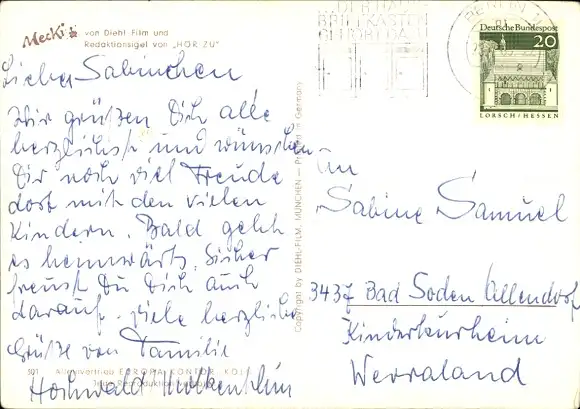 Mecki von Diehl Film und
Redaktionsigel von „HÖR ZU"
Liebes Sabinchen
Wir grüßen Dich alle
herzlichst und wünschen
Dir noch viel Freude
dort mit den vielen
Kindern. Bald geht
es heimwärts. Sicher
freust Du Dich auch
darauf. Viele herzliche
Grüße von Familie
Hochwald
501 Alleinvertrieb EUROPA KONTOR, KÖLN
Copyright by DIEHL-FILM, MÜNCHEN — Printed in Germany
BRIEFKASTEN
BERLIN
Deutsche Bundespost
20
LORSCH/HESSEN
An
Sabine Samuel
3437 Bad Soden Allendorf
Kinderkurheim
Werraland